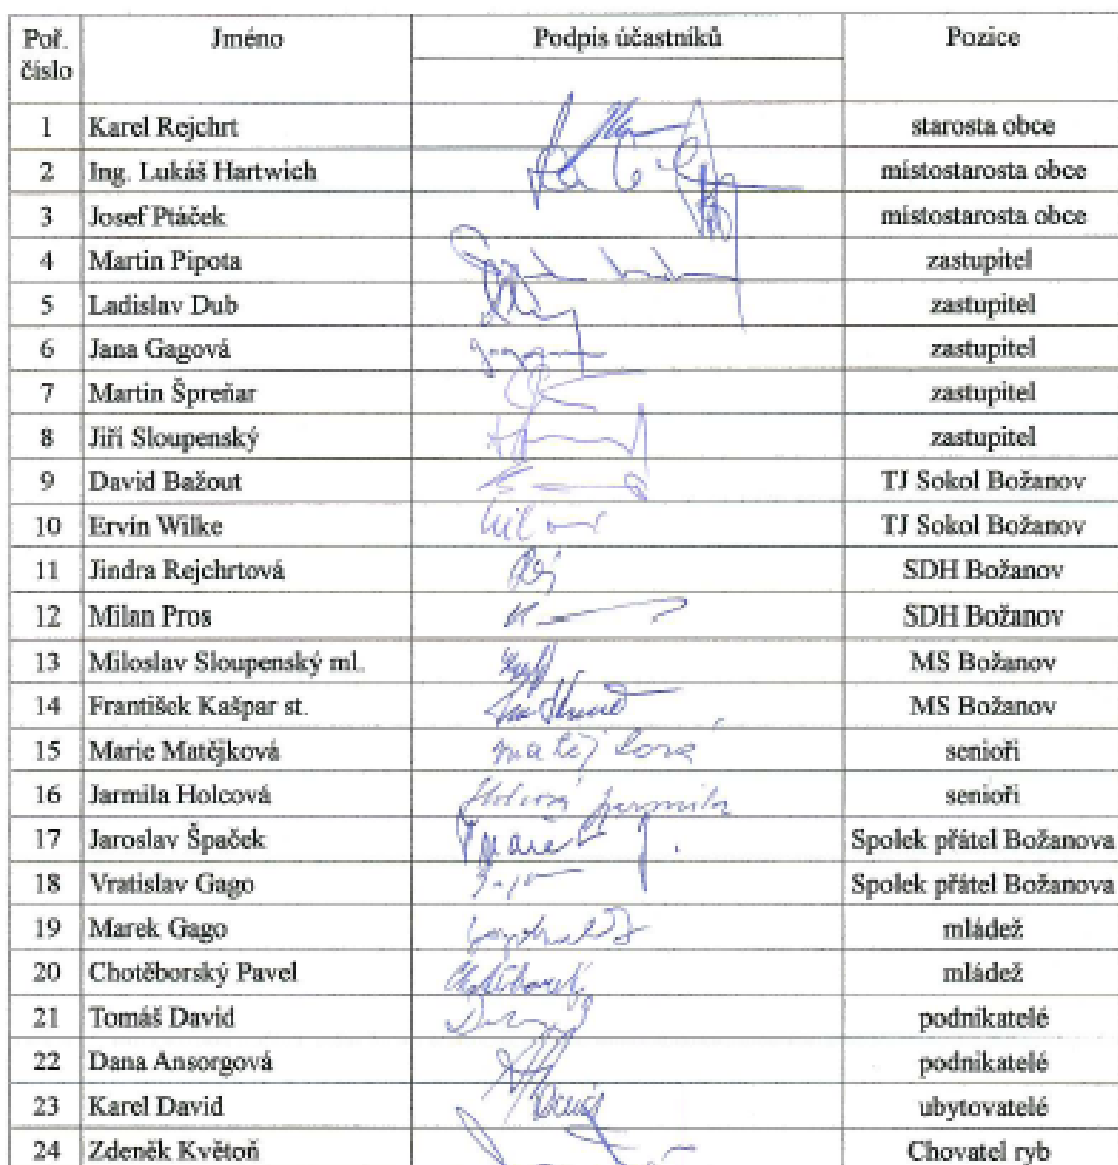 Poř. číslo Jméno Podpis účastníků Pozice
1 Karel Rejchrt starosta obce
2 Ing. Lukáš Hartwich místostarosta obce
3 Josef Ptáček místostarosta obce
4 Martin Pipota zastupitel
5 Ladislav Dub zastupitel
6 Jana Gagová zastupitel
7 Martin Špreňar zastupitel
8 Jiří Sloupenský zastupitel
9 David Bažout TJ Sokol Božanov
10 Ervín Wilke TJ Sokol Božanov
11 Jindra Rejchrtová SDH Božanov
12 Milan Pros SDH Božanov
13 Miloslav Sloupenský ml. MS Božanov
14 František Kašpar st. MS Božanov
15 Marie Matějková matějková senioři
16 Jarmila Holcová Holcová Jarmila senioři
17 Jaroslav Špaček Spolek přátel Božanova
18 Vratislav Gago Spolek přátel Božanova
19 Marek Gago mládež
20 Chotěborský Pavel Chotěborský mládež
21 Tomáš David podnikatelé
22 Dana Ansorgová podnikatelé
23 Karel David David ubytovatelé
24 Zdeněk Květoň Chovatel ryb